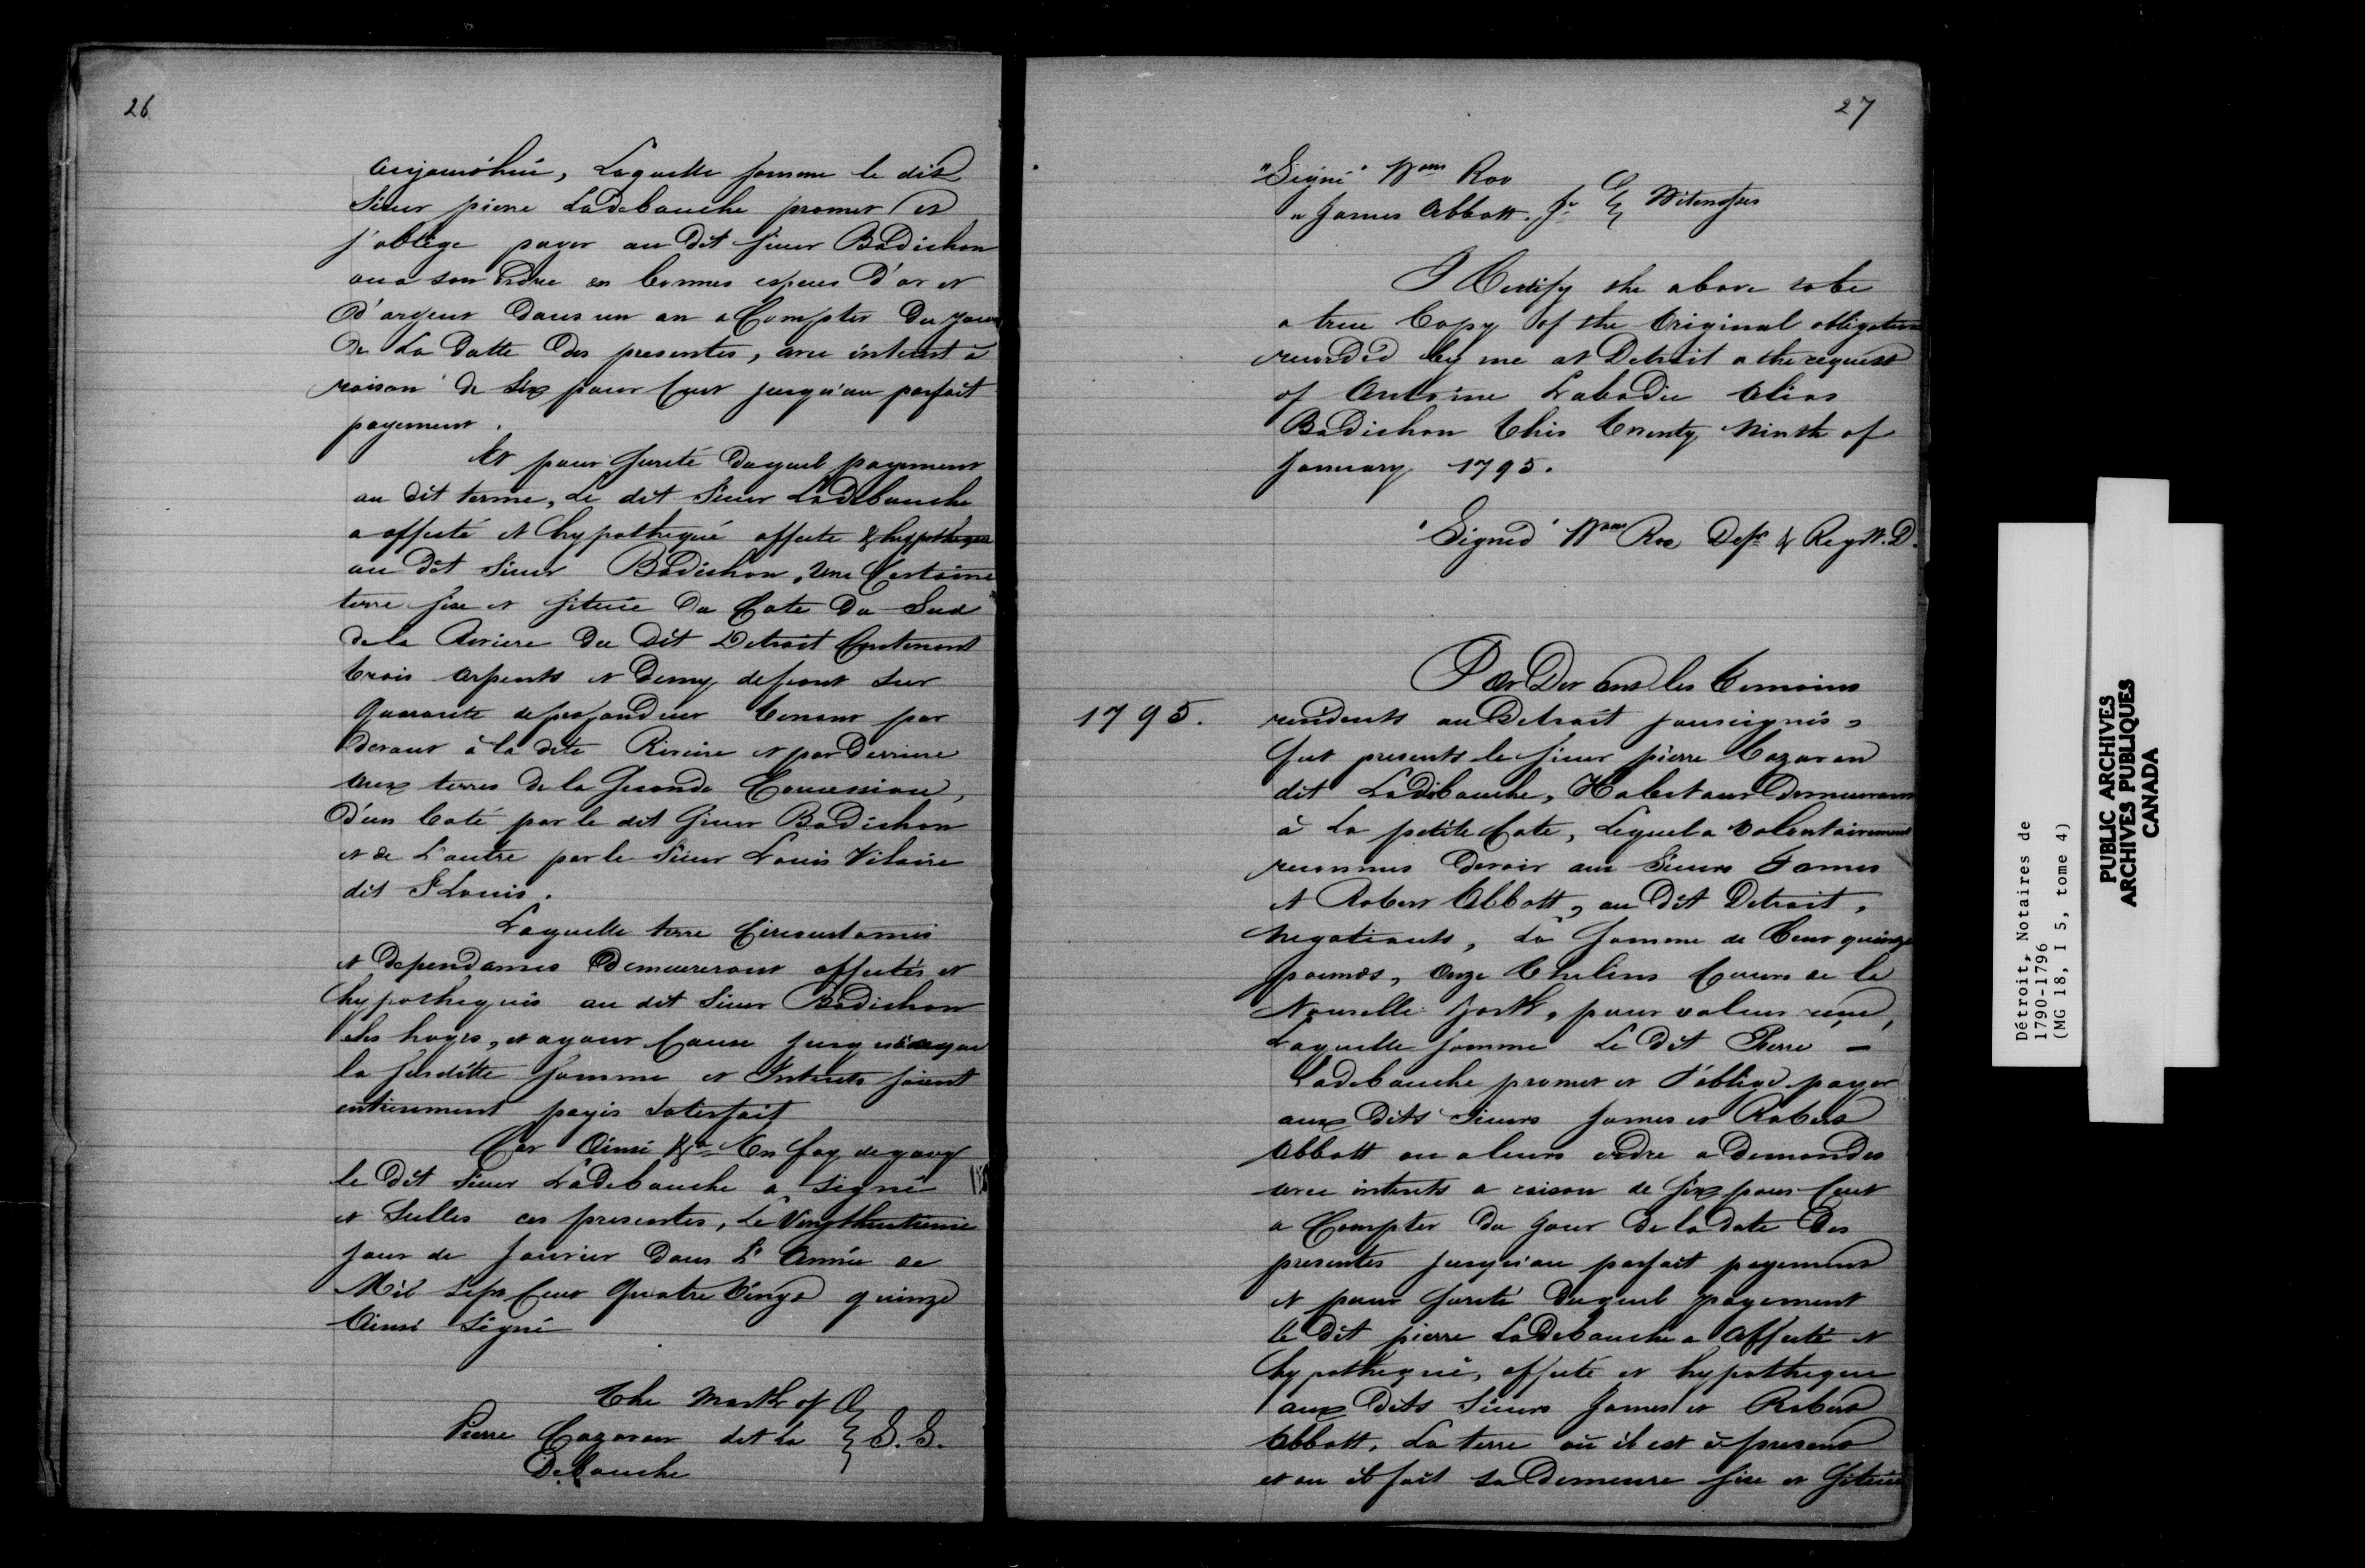 26
aujourdhui, Laquelle somme le dit
Sieur pierre Ladebauche promet et
s'oblige payer au Dit sieur Badichon
ou a son Ordre en bonnes especes D'or et
D'argent Dans un an a Compter Du jour
De La Datte Des presentes, avec interest à
raison de Six pour Cent jusqu'au parfait
payement.
Et pour sureté Duquel payement
au dit terme, Le dit Sieur Ladebauche
a affecté et hypothequé affecte & hypotheque
au Dit Sieur Badichon, Une Certaine
terre sise et située Du Cote Du Sud
de la Riviere Du Dit Detroit Contenant
trois arpents et Demy defront sur
Quarante deprofondeur tenant par
devant à la dite Riviere et par Derriere
aux terres De la Seconde Concession,
D'un Coté par le dit Sieur Badichon
et de L'autre par le Sieur Louis Vilaire
dit St Louis.
Laquelle terre Circonstances
et Dependances Demeureront affectés et
hypothequés au dit Sieur Badichon
ses hoyrs, et ayant Cause jusqu'à ceque
la susditte Somme et Interets soient
entierement payés Satisfait
Car Ainsi &a En foy dequoy
le Dit Sieur Ladebauche a Signé
et Selles ces presentes, Le Vingthuitieme
jour de Janvier Dans L'Année de
Mil Sept Cent Quatre Vingt quinze
Ainsi Signé
The Mark of
Pierre Cazavan dit La S. S.
Debauche
27
"Signé" Wm Roe
" James Abbott. Jr Witnesses
I Certify the above tobe
a true Copy of the Original obligation
recorded by me at Detroit a the request
of Antoine Labadie Alias
Badichon this twenty Ninth of
January 1795.
"Signed" Wm Roe Depy & Reg W. D.
1795.
Par Devant les temoins
residents au Detroit sousignés,
fut presents le sieur pierre Cazavan
dit Ladébauche, Habitant Demeurant
à La petite Cote, Lequel a Volontairement
reconnus Devoir aux Sieurs James
et Robert Abbott, au Dit Detroit,
Negotiants, La Somme de Cent quinze
pounds, Onze Chelins Cours de la
Nouvelle York, pour valeur recue,
Laquelle somme Le Dit Pierre –
Ladebauche promet et S'oblige payer
aux Dits Sieurs James et Robert
Abbott ou a leurs ordre a Demandes
avec interets a raison de six pour Cent
a Compter Du Jour De la date Des
presentes jusqu'au parfait payement
et pour sureté Duquel payement
le Dit pierre LaDebauche a Affecté et
hypothequé, affecté et hypotheque
aux Dits Sieurs James et Robert
Abbott, La terre où il est à present
et ou il fait sa Demeure sise et Située
Détroit, Notaires de
1790-1796
(MG 18, I 5, tome 4)
PUBLIC ARCHIVES
ARCHIVES PUBLIQUES
CANADA